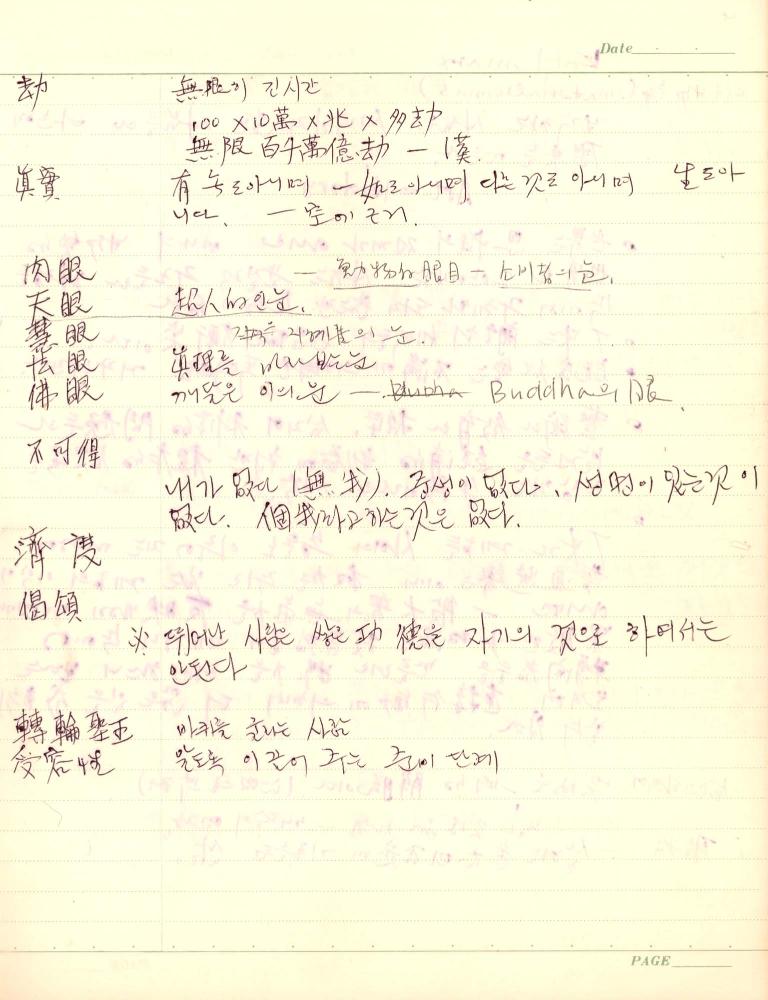 Date
劫 無限히 긴시간
100 × 10萬 × 兆 × 多劫
無限 百千萬億劫 — 1漢.
眞實 有 도아니며 一如도아니며 다른것도 아니며 生도아
니다. — 空에 근거.
肉眼 — 動物的 眼目 — 소비힘의 눈.
天眼 超人的인눈.
慧眼 의 눈.
法眼 眞理를 바라보는눈
佛眼 깨달은 이의 눈 — Buddha의 眼.
不可得
내가 없다 (無我). 중생이 없다. 생명이 있는것이
없다. 個我라고하는것은 없다.
濟度
偈頌
※ 뛰어난 사람은 쌓은 功德을 자기의 것으로 하여서는
안된다
轉輪聖王 바퀴를 굴리는 사람
受容性 알도록 이끌어 주는 준비 단계
PAGE